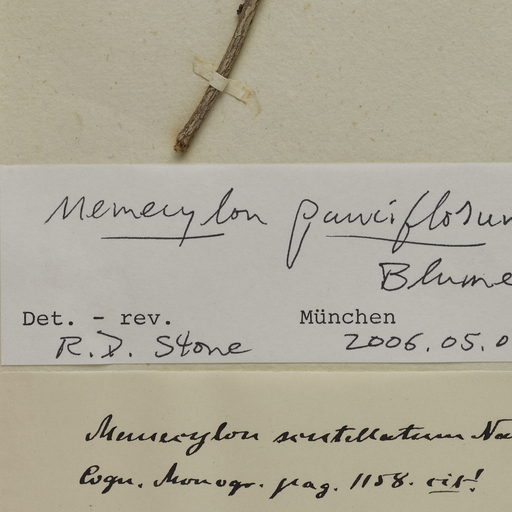 Memecylon pauciflorum
Blume
Det. - rev. München
R.D. Stone 2006.05.0
Memecylon scutellatum Na
Cogn. Monogr. pag. 1158. cit!